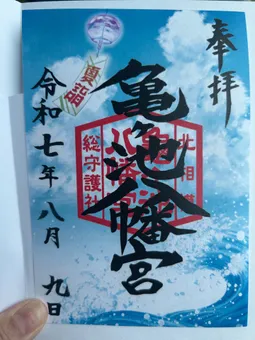 奉拝
亀ヶ池八幡宮
北相模
総守護社
夏詣
令和七年八月九日